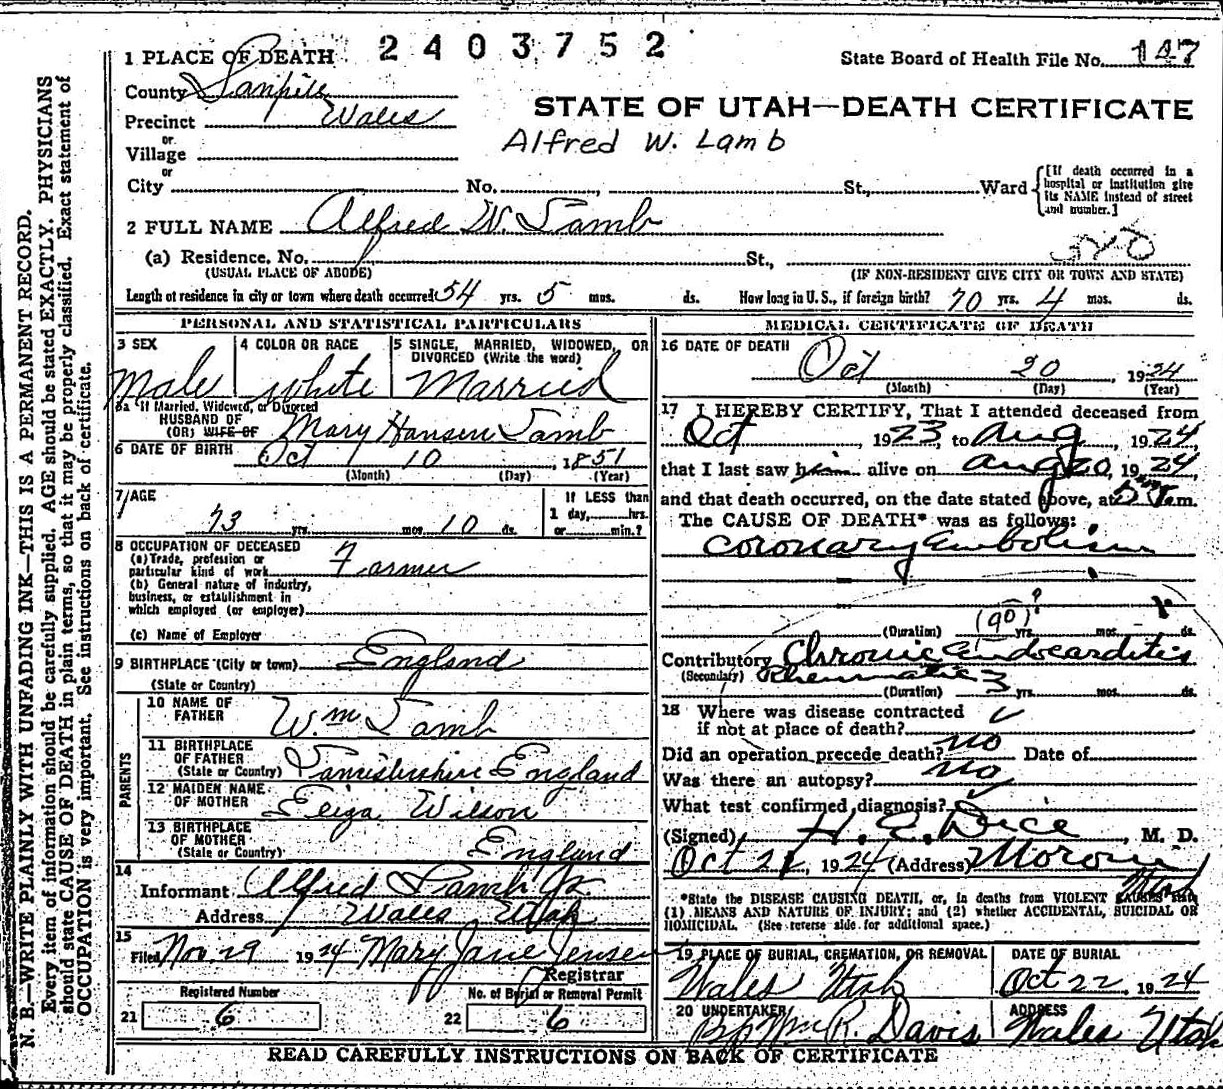 2403752
1 PLACE OF DEATH
State Board of Health File No. 147
County Sanpete
STATE OF UTAH—DEATH CERTIFICATE
Precinct Wales
Alfred W. Lamb
or
Village
or
City No. , St., Ward
[If death occurred in a hospital or institution give its NAME instead of street and number.]
2 FULL NAME Alfred W. Lamb
(a) Residence, No. St.,
(USUAL PLACE OF ABODE) (IF NON-RESIDENT GIVE CITY OR TOWN AND STATE)
Length of residence in city or town where death occurred 54 yrs. 5 mos. ds. How long in U.S., if foreign birth? 70 yrs. 4 mos. ds.
PERSONAL AND STATISTICAL PARTICULARS
3 SEX
Male
4 COLOR OR RACE
White
5 SINGLE, MARRIED, WIDOWED, OR DIVORCED (Write the word)
Married
5a If Married, Widowed, or Divorced
HUSBAND OF
(OR) WIFE OF Mary Hansen Lamb
6 DATE OF BIRTH Oct 10, 1851
(Month) (Day) (Year)
7 AGE
73 yrs. mos. 10 ds.
If LESS than
1 day, hrs.
or min.?
8 OCCUPATION OF DECEASED
(a) Trade, profession or
particular kind of work Farmer
(b) General nature of industry,
business, or establishment in
which employed (or employer)
(c) Name of Employer
9 BIRTHPLACE (City or town) England
(State or Country)
PARENTS
10 NAME OF FATHER Wm Lamb
11 BIRTHPLACE OF FATHER
(State or Country) England
12 MAIDEN NAME OF MOTHER Eliza Wilson
13 BIRTHPLACE OF MOTHER
(State or Country) England
14
Informant Alfred Lamb Jr.
Address Wales, Utah
15
Filed Nov. 29 1924 Mary Jane Jensen
Registrar
Registered Number
21 6
No. of Burial or Removal Permit
22 6
MEDICAL CERTIFICATE OF DEATH
16 DATE OF DEATH
Oct 20, 1924
(Month) (Day) (Year)
17 I HEREBY CERTIFY, That I attended deceased from
Oct, 1923 to Aug, 1924
that I last saw him alive on Aug 20, 1924
and that death occurred, on the date stated above, at 5 m.
The CAUSE OF DEATH* was as follows:
Coronary Embolism
(90)?
(Duration) yrs. mos. ds.
Contributory Chronic Endocarditis
(Secondary) Rheumatic
(Duration) 3 yrs. mos. ds.
18 Where was disease contracted
if not at place of death?
Did an operation precede death? no Date of
Was there an autopsy? no
What test confirmed diagnosis?
(Signed) M. D.
Oct 21, 1924 (Address) Moroni
Utah
*State the DISEASE CAUSING DEATH, or, in deaths from VIOLENT CAUSES state
(1) MEANS AND NATURE OF INJURY; and (2) whether ACCIDENTAL, SUICIDAL OR
HOMICIDAL. (See reverse side for additional space.)
19 PLACE OF BURIAL, CREMATION, OR REMOVAL
Wales Utah
DATE OF BURIAL
Oct 22, 1924
20 UNDERTAKER
Bp Wm R. Davis
ADDRESS
Wales Utah
READ CAREFULLY INSTRUCTIONS ON BACK OF CERTIFICATE
N. B.—WRITE PLAINLY WITH UNFADING INK—THIS IS A PERMANENT RECORD.
Every item of information should be carefully supplied. AGE should be stated EXACTLY. PHYSICIANS
should state CAUSE OF DEATH in plain terms, so that it may be properly classified. Exact statement of
OCCUPATION is very important. See instructions on back of certificate.